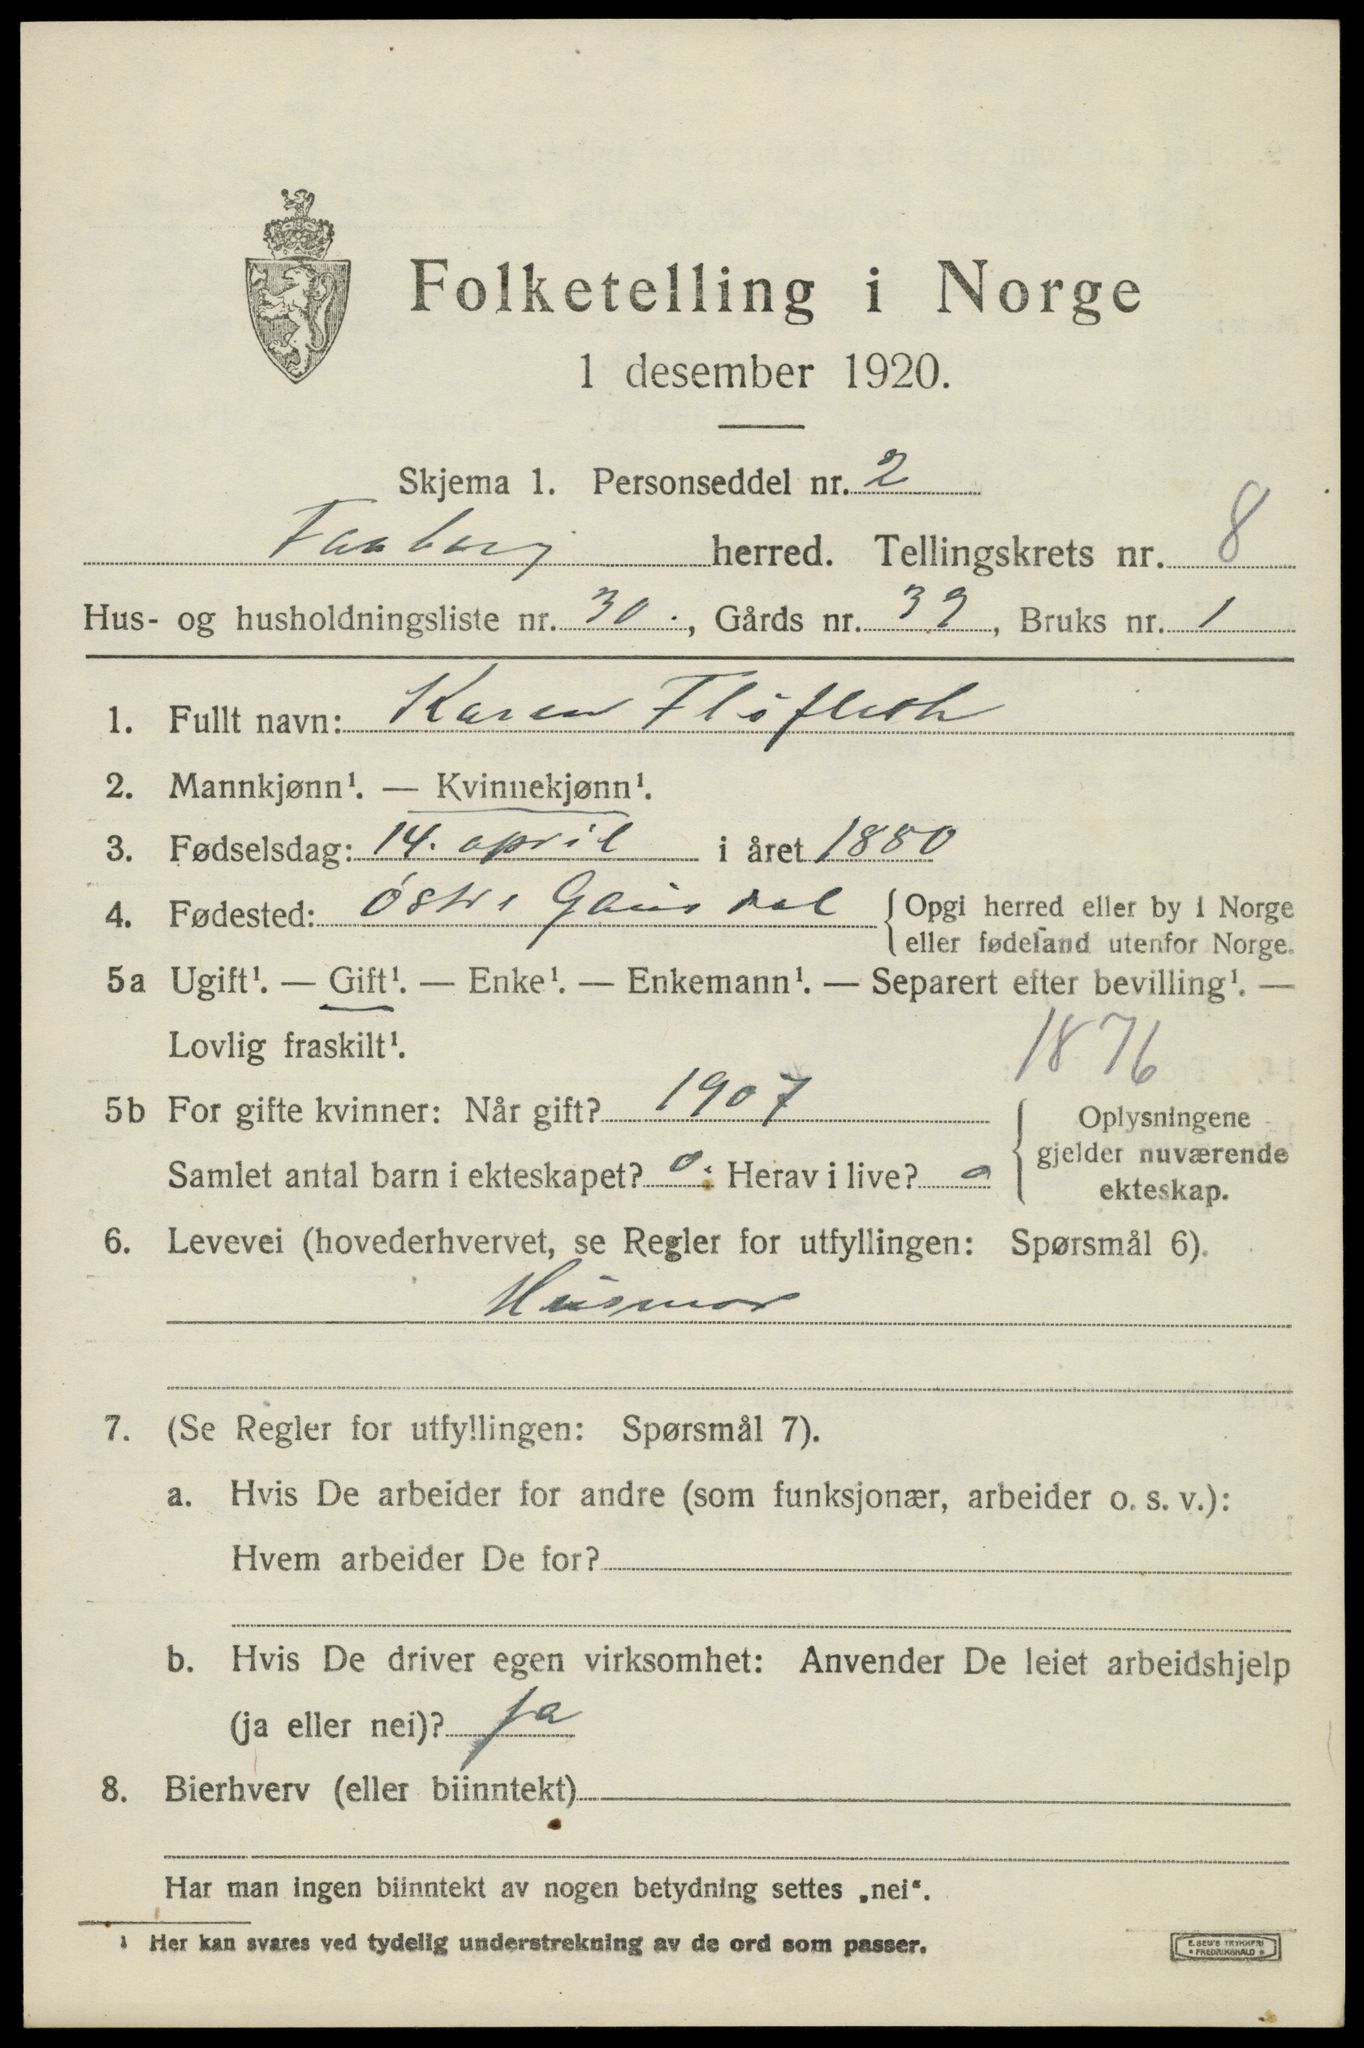 Folketelling i Norge
1 desember 1920.
Skjema 1. Personseddel nr. 2
Faaberg herred. Tellingskrets nr. 8
Hus- og husholdningsliste nr. 30., Gårds nr. 39, Bruks nr. 1
1. Fullt navn: Karen
2. Mannkjønn¹. — Kvinnekjønn¹.
3. Fødselsdag: 14. april i året 1880
4. Fødested: Østre Gausdal {Opgi herred eller by i Norge
eller fødeland utenfor Norge.
5a Ugift¹. — Gift¹. — Enke¹. — Enkemann¹. — Separert efter bevilling¹. —
Lovlig fraskilt¹.
1876
5b For gifte kvinner: Når gift? 1907
Samlet antal barn i ekteskapet? 0; Herav i live? 0
{Oplysningene
gjelder nuværende
ekteskap.
6. Levevei (hovederhvervet, se Regler for utfyllingen: Spørsmål 6).
Husmor
7. (Se Regler for utfyllingen: Spørsmål 7).
a. Hvis De arbeider for andre (som funksjonær, arbeider o. s. v.):
Hvem arbeider De for?
b. Hvis De driver egen virksomhet: Anvender De leiet arbeidshjelp
(ja eller nei)? ja
8. Bierhverv (eller biinntekt)
Har man ingen biinntekt av nogen betydning settes „nei“.
¹ Her kan svares ved tydelig understrekning av de ord som passer.
E. SEM'S TRYKKERI
• FREDRIKSHALD •